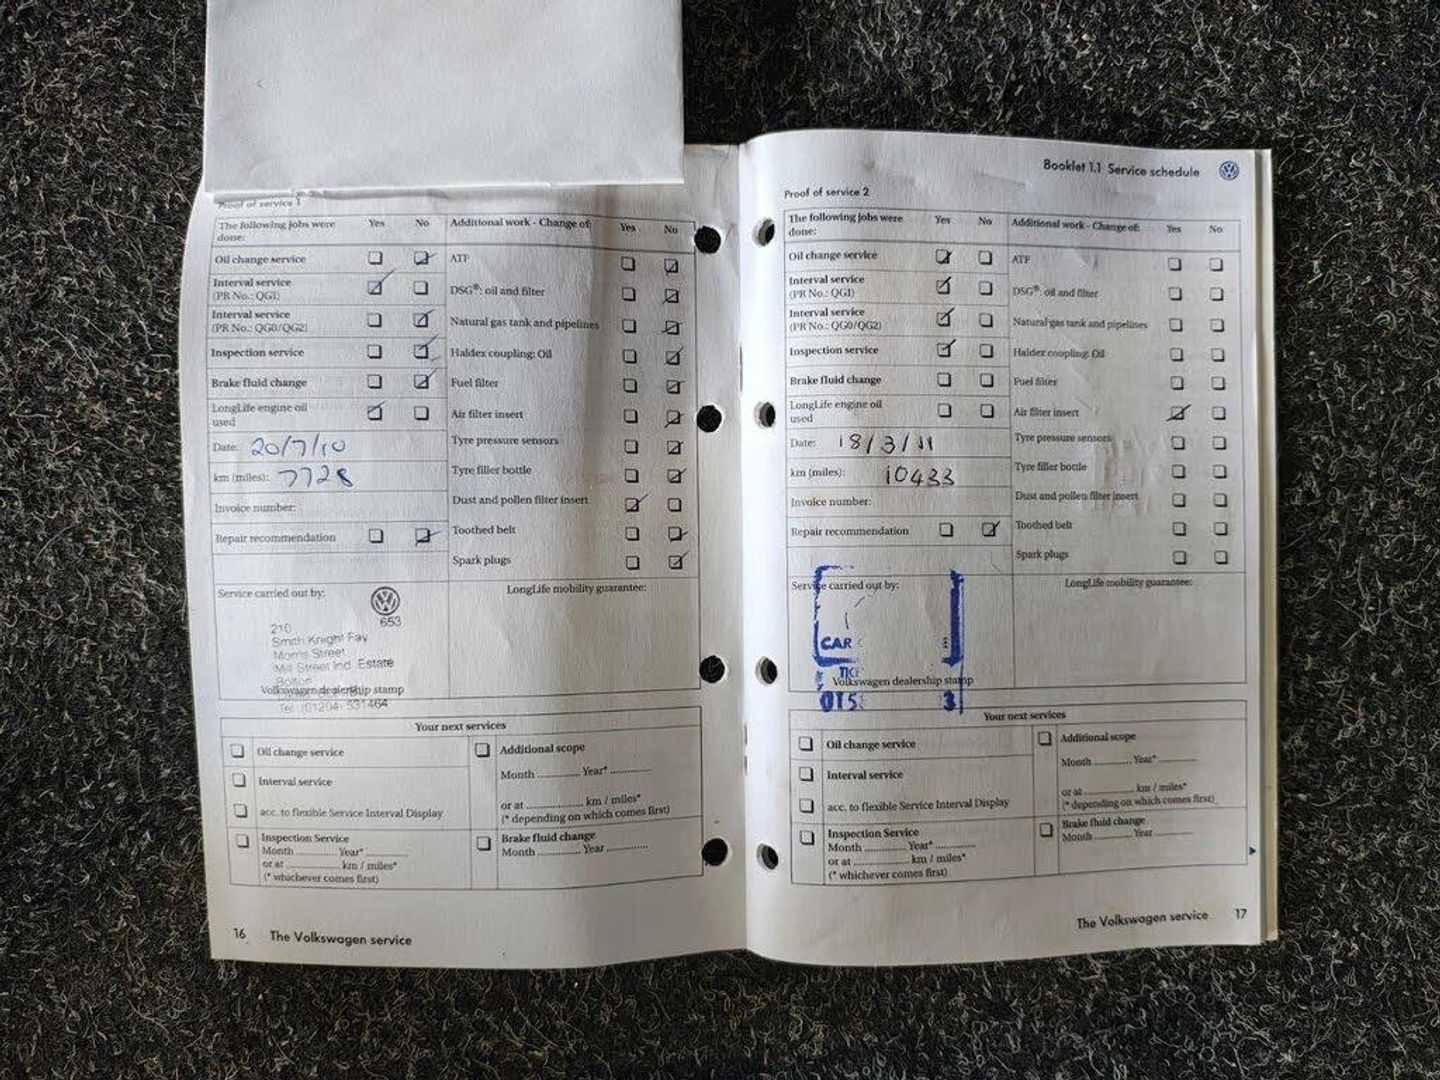 Proof of service 1
The following jobs were done: Yes No Additional work - Change of: Yes No
Oil change service ATF
Interval service (PR No.: QG1) DSG®: oil and filter
Interval service (PR No.: QG0/QG2) Natural gas tank and pipelines
Inspection service Haldex coupling: Oil
Brake fluid change Fuel filter
LongLife engine oil used Air filter insert
Date: 20/7/10 Tyre pressure sensors
km (miles): 7728 Tyre filler bottle
Invoice number: Dust and pollen filter insert
Repair recommendation Toothed belt
Spark plugs
Service carried out by: LongLife mobility guarantee:
653
216
Smith Knight Fay
Morris Street
Mill Street Ind. Estate
Bolton
Volkswagen dealership stamp
Tel. (01204) 531464
Your next services
Oil change service Additional scope
Interval service Month ............ Year* ............
acc. to flexible Service Interval Display or at ................ km / miles*
(* depending on which comes first)
Inspection Service Brake fluid change
Month ......... Year* ......... Month ......... Year ............
or at ................ km / miles*
(* whichever comes first)
16 The Volkswagen service
Booklet 1.1 Service schedule
Proof of service 2
The following jobs were done: Yes No Additional work - Change of: Yes No
Oil change service ATF
Interval service (PR No.: QG1) DSG®: oil and filter
Interval service (PR No.: QG0/QG2) Natural gas tank and pipelines
Inspection service Haldex coupling: Oil
Brake fluid change Fuel filter
LongLife engine oil used Air filter insert
Date: 18/3/11 Tyre pressure sensors
km (miles): 10433 Tyre filler bottle
Invoice number: Dust and pollen filter insert
Repair recommendation Toothed belt
Spark plugs
Service carried out by: LongLife mobility guarantee:
CAR
Volkswagen dealership stamp
Your next services
Oil change service Additional scope
Interval service Month ............ Year* ............
acc. to flexible Service Interval Display or at ................ km / miles*
(* depending on which comes first)
Inspection Service Brake fluid change
Month ......... Year* ............ Month ......... Year ............
or at ................ km / miles*
(* whichever comes first)
The Volkswagen service 17